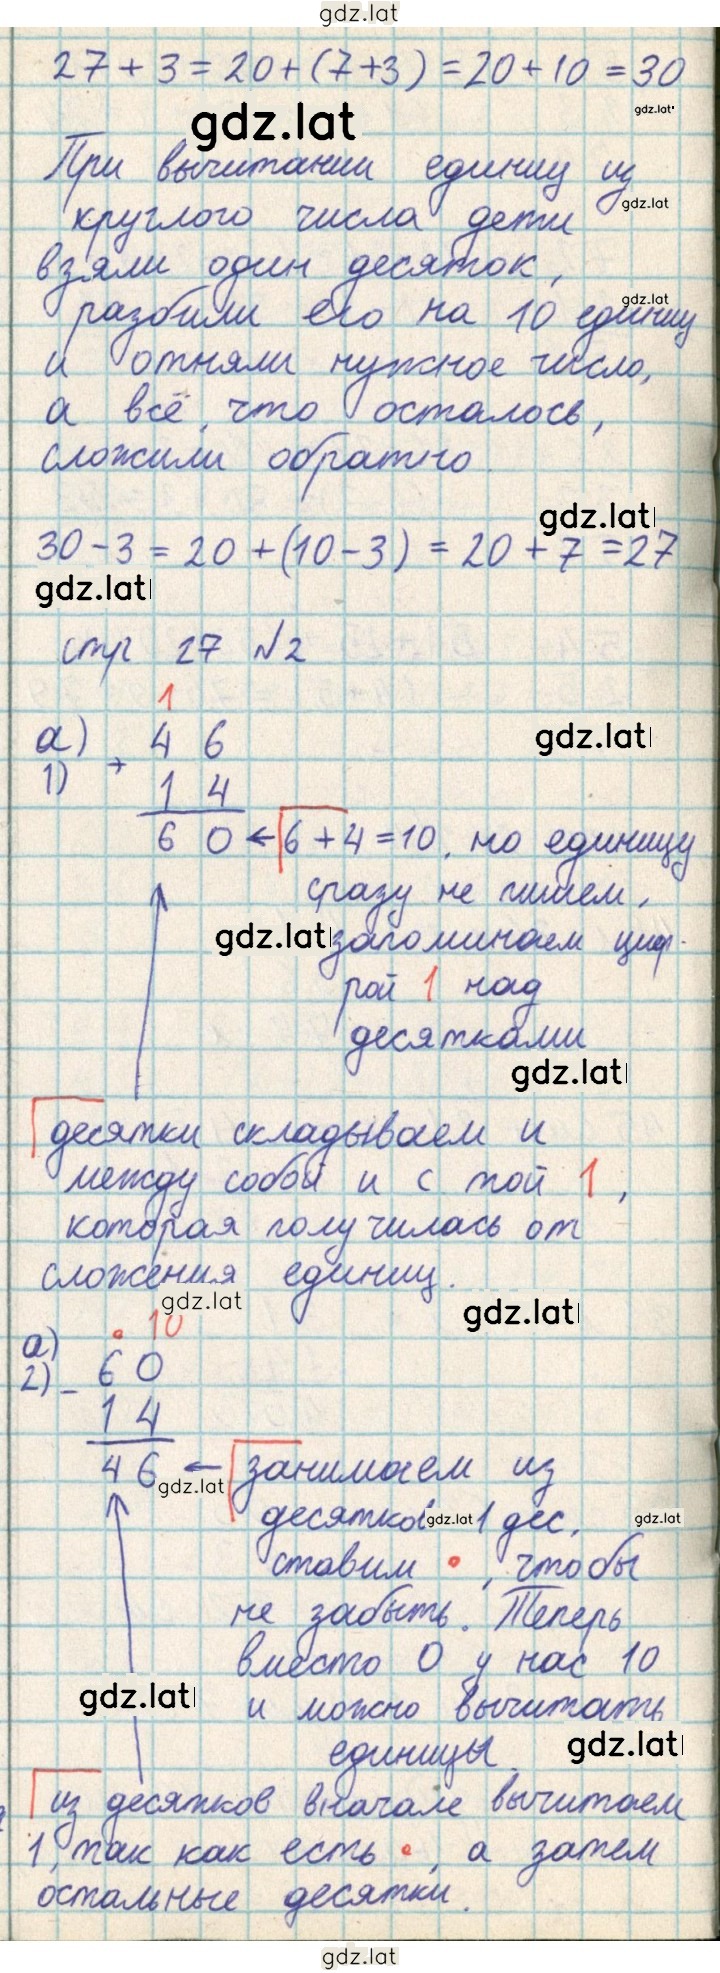 gdz.lat
27 + 3 = 20 + (7+3) = 20 + 10 = 30
gdz.lat
gdz.lat
При вычитании единиц из
gdz.lat
круглого числа дети
взяли один десяток,
gdz.lat
разбили его на 10 единиц
и отняли нужное число,
а всё, что осталось,
сложили обратно.
gdz.lat
30 - 3 = 20 + (10 - 3) = 20 + 7 = 27
gdz.lat
стр 27 №2
1
а) 4 6
gdz.lat
1) +
1 4
6 0 ← 6 + 4 = 10, но единицу
сразу не пишем,
gdz.lat запоминаем циф-
рой 1 над
десятками
gdz.lat
десятки складываем и
между собой и с той 1,
которая получилась от
сложения единиц.
gdz.lat
gdz.lat
• 10
а) 6 0
2) -
1 4
4 6 ← занимаем из
gdz.lat
десятков 1 дес.
gdz.lat
gdz.lat
ставим •, чтобы
не забыть. Теперь
вместо 0 у нас 10
gdz.lat
и можно вычитать
единицы
gdz.lat
из десятков вначале вычитаем
1, так как есть •, а затем
остальные десятки.
gdz.lat